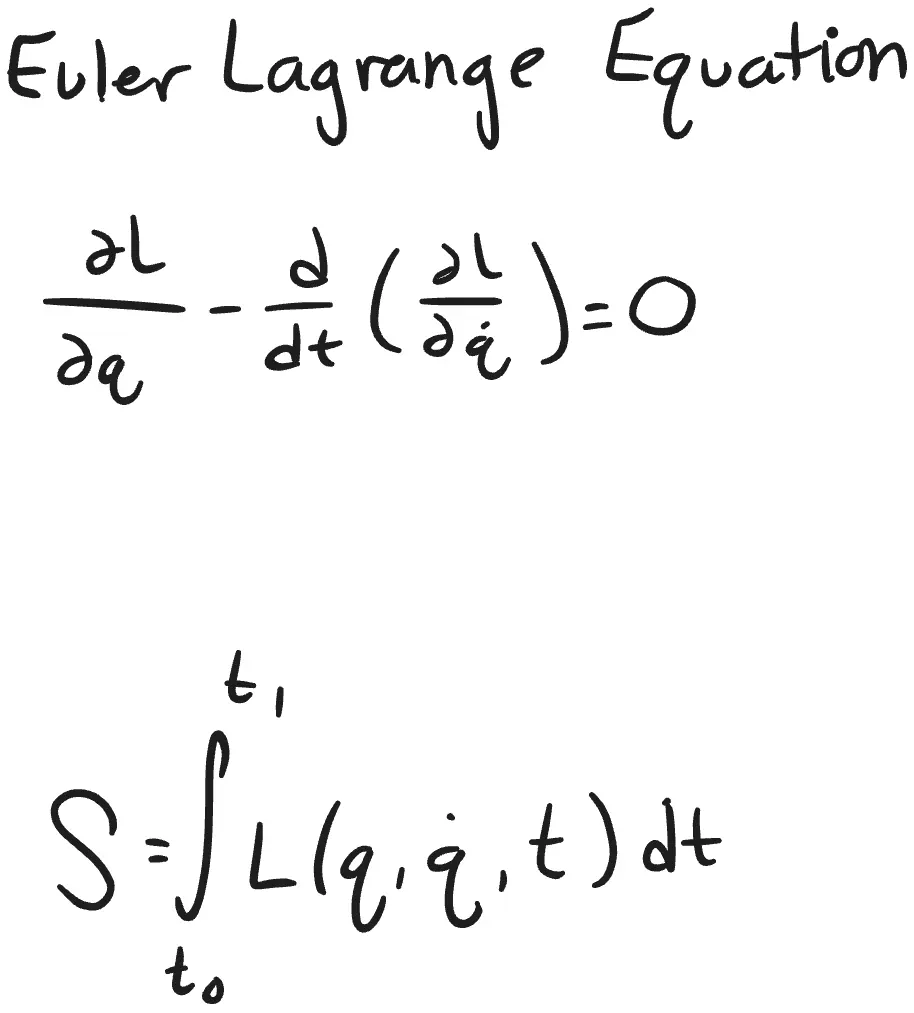 Euler Lagrange Equation
∂L/∂q - d/dt (∂L/∂q̇) = 0
S = ∫_{t_0}^{t_1} L(q, q̇, t) dt